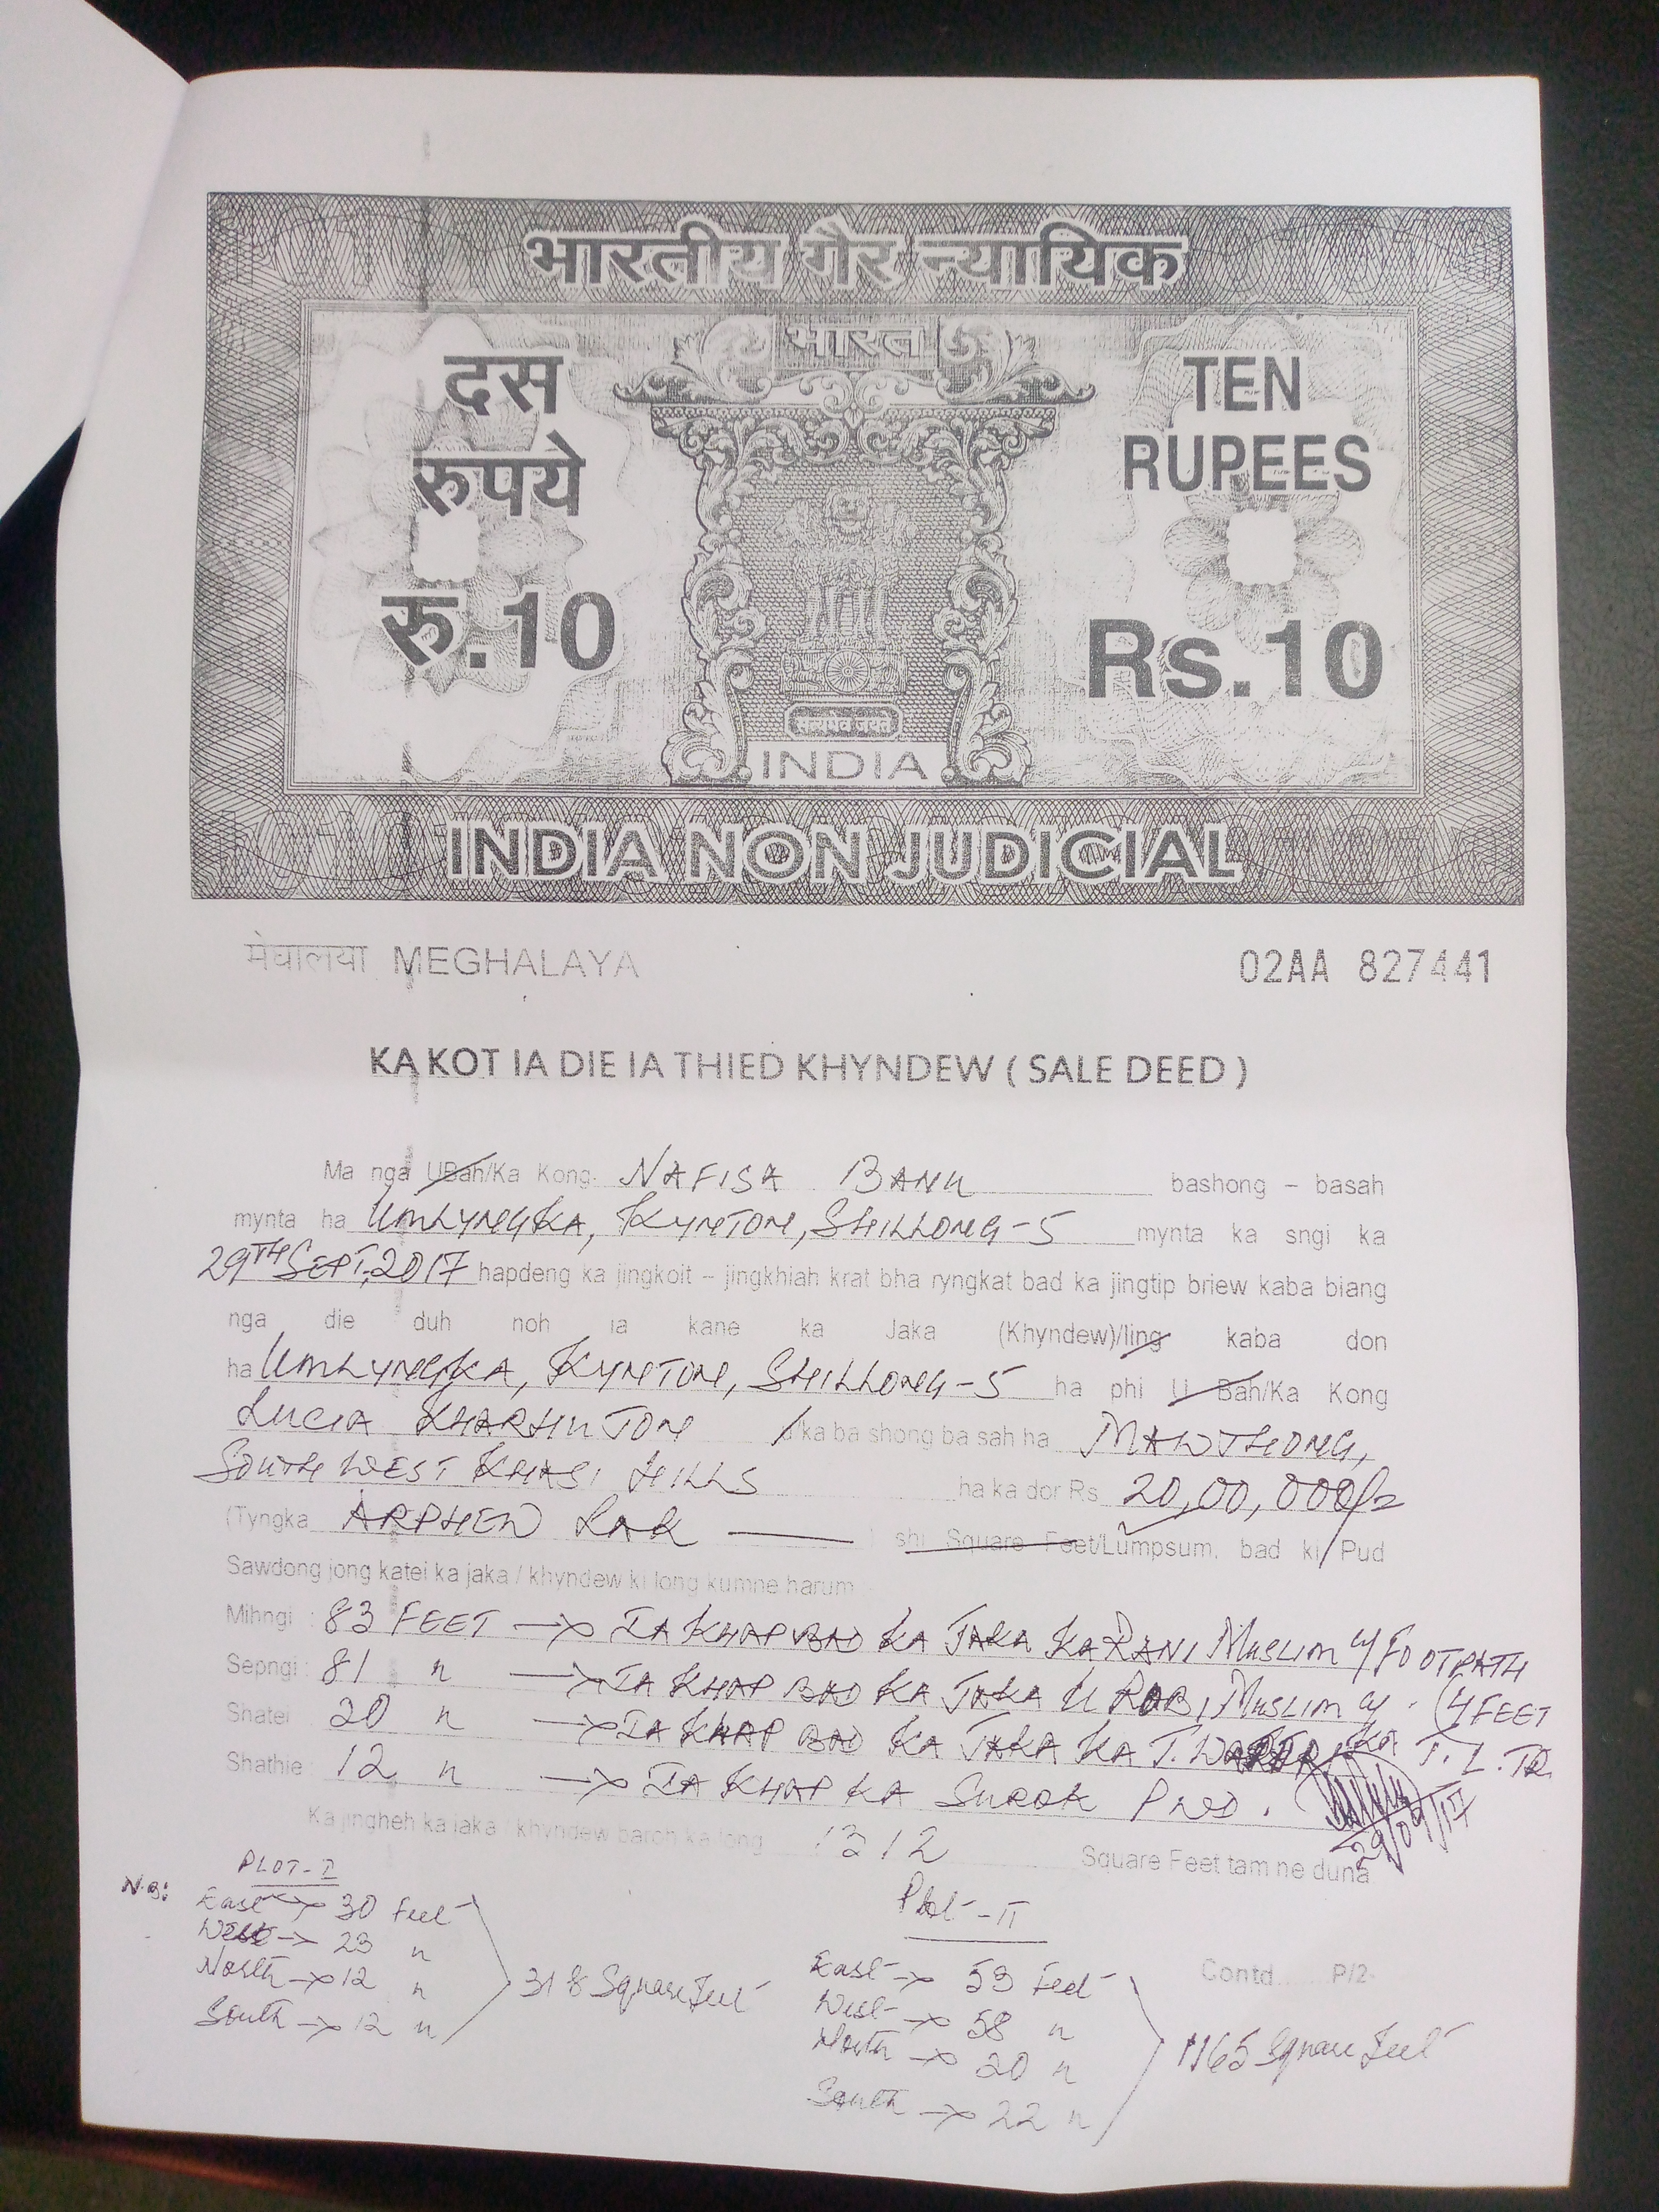 भारतीय गैर न्यायिक
भारत
दस
रुपये
रू.10
TEN
RUPEES
Rs.10
सत्यमेव जयते
INDIA
INDIA NON JUDICIAL
मेघालया MEGHALAYA
02AA 827441
KA KOT IA DIE IA THIED KHYNDEW ( SALE DEED )
Ma nga UBah/Ka Kong NAFISA BANU bashong – basah
mynta ha UMLYNGKA, KYNTON, SHILLONG-5 mynta ka sngi ka
29TH SEPT, 2017 hapdeng ka jingkoit – jingkhiah krat bha ryngkat bad ka jingtip briew kaba biang
nga die duh noh ia kane ka Jaka (Khyndew)/Iing kaba don
ha UMLYNGKA, KYNTON, SHILLONG-5 ha phi U Bah/Ka Kong
LUCIA KHARHUJON /ka ba shong ba sah ha MAWTHONG,
SOUTH WEST KHASI HILLS ha ka dor Rs 20,00,000/=
(Tyngka ARPHEW LAK ) shi Square Feet/Lumpsum, bad ki Pud
Sawdong jong katei ka jaka / khyndew ki long kumne harum :-
Mihngi : 83 FEET → IA KHAP BAD KA JAKA KA RANI MUSLIM FOOTPATH
Sepngi : 81 " → IA KHAP BAD KA JAKA U RABI MUSLIM (4 FEET
Shatei : 20 " → IA KHAP BAD KA JAKA KA T. KA
Shathie : 12 " → IA KHAP KA SUROK PWD.
29/09/17
Ka jingheh ka jaka / khyndew baroh ka long 1312 Square Feet tam ne duna
N.B: PLOT-I
East → 30 Feet
West → 23 "
North → 12 "
South → 12 "
318 Square Feet
Plot-II
East → 53 Feet
West → 58 "
North → 20 "
South → 22 "
1165 Square Feet
Contd...... P/2-